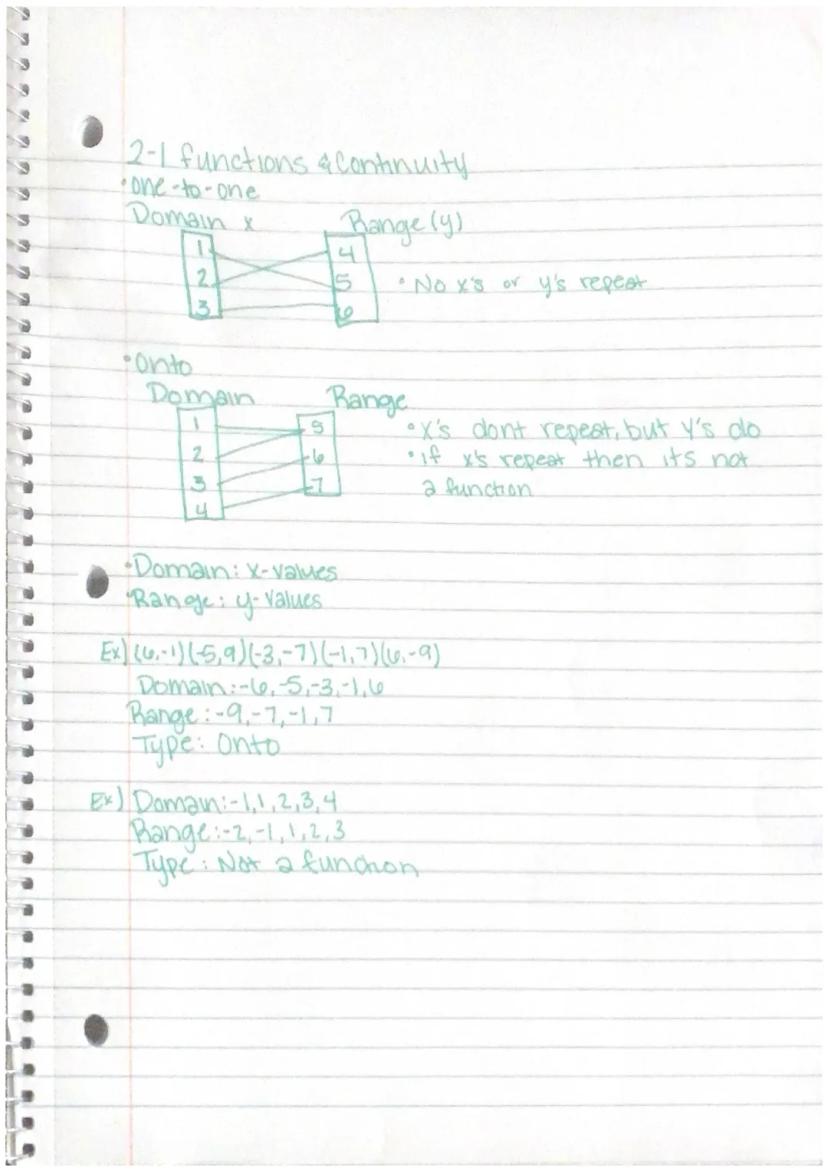 2-1 functions & continuity
• one-to-one
Domain x Range (y)
1 4
2 5 • No x's or y's repeat
3 6
• Onto
Domain Range
1 5 • x's dont repeat, but y's do
2 6 • if x's repeat then its not
3 7 a function
4
• Domain: x-values
• Range: y-values
Ex) (6,-1)(-5,9)(-3,-7)(-1,7)(6,-9)
Domain: -6,-5,-3,-1,6
Range: -9,-7,-1,7
Type: Onto
Ex) Domain: -1,1,2,3,4
Range: -2,-1,1,2,3
Type: Not a function